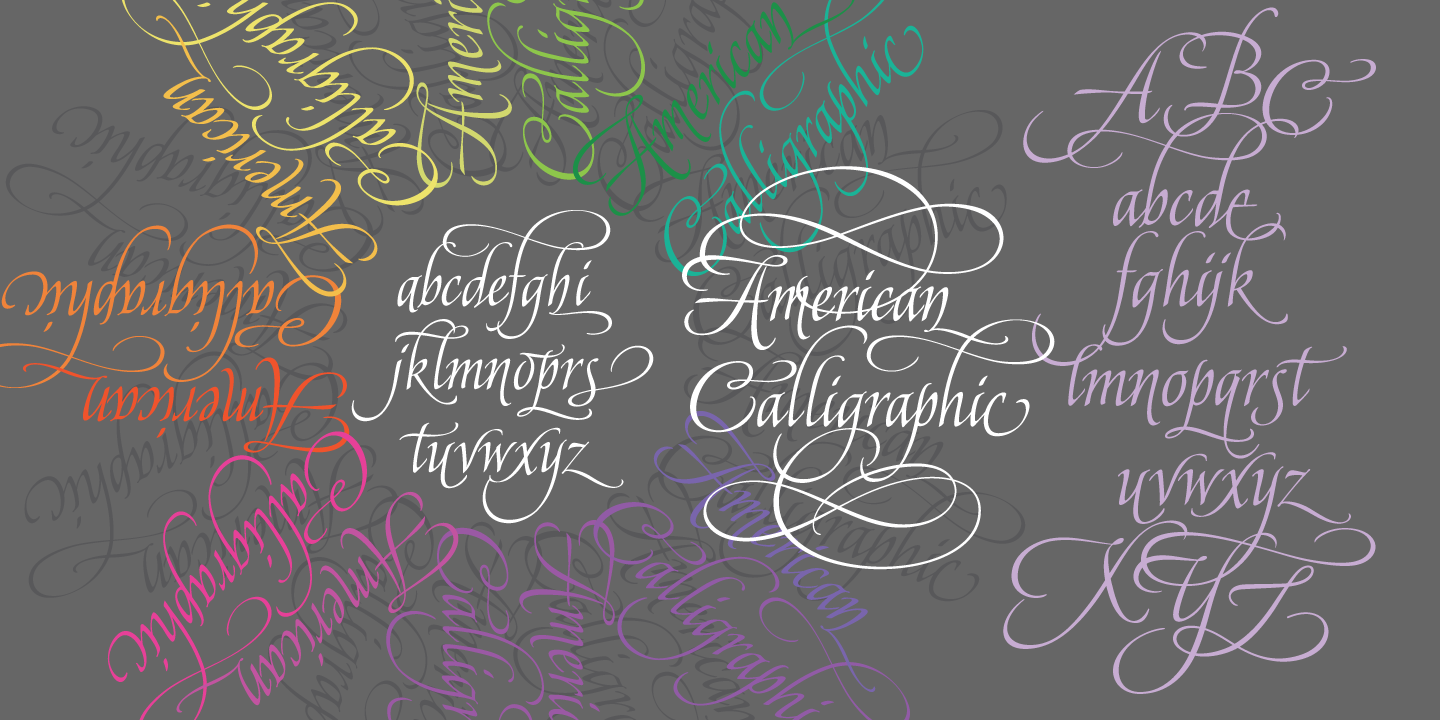 American
Calligraphic
American
Calligraphic
American
Calligraphic
American
Calligraphic
American
Calligraphic
American
Calligraphic
American
Calligraphic
abcdefghi
jklmnoprs
tuvwxyz
American
Calligraphic
ABC
abcde
fghijk
lmnopqrst
uvwxyz
XYZ